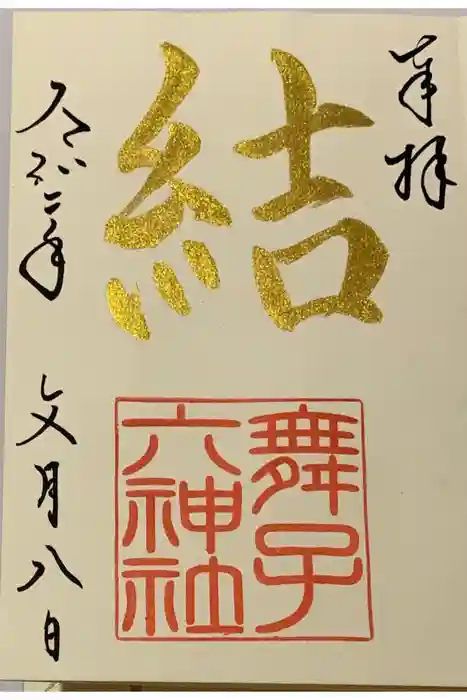 奉拝
結
舞子
六神社
令和二年
文月八日